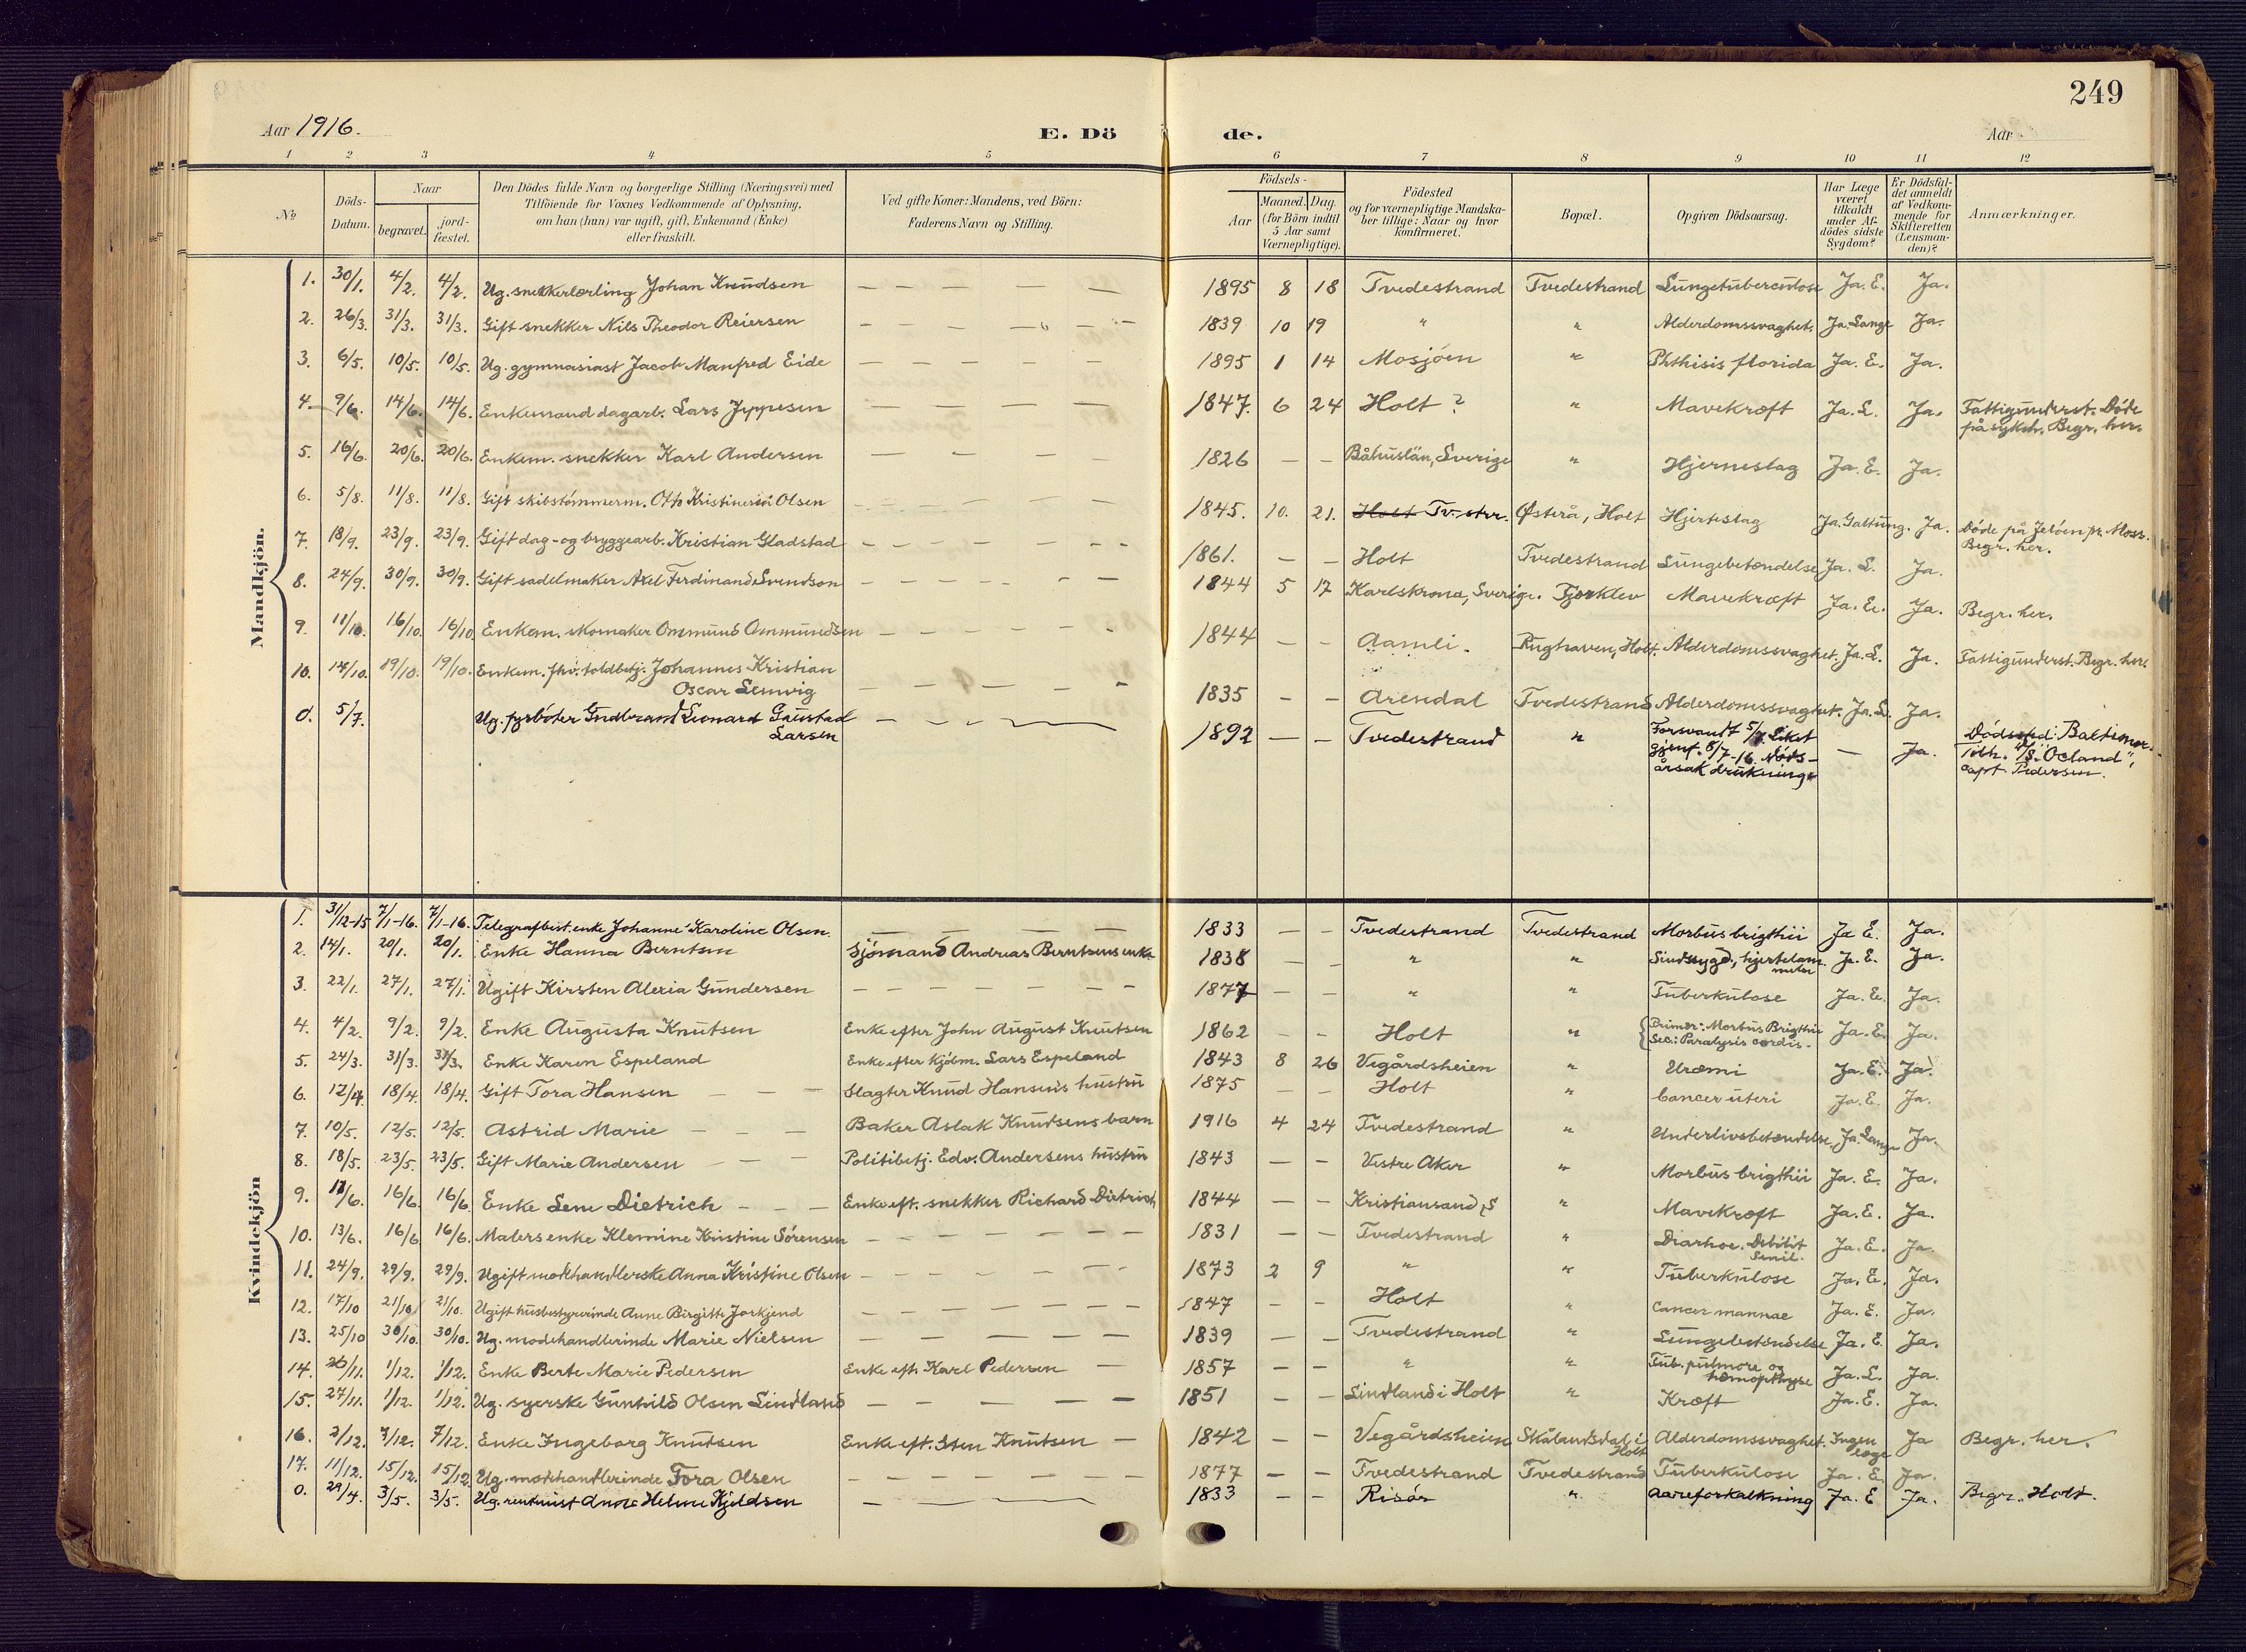 249
Aar 1916.
E. Dö
de.
Aar
1 2 3 4 5 6 7 8 9 10 11 12
No
Döds-Datum.
Naar
begravet.
jord-fæstet.
Den Dödes fulde Navn og borgerlige Stilling (Næringsvei) med
Tilföiende for Voxnes Vedkommende af Oplysning,
om han (hun) var ugift, gift, Enkemand (Enke)
eller fraskilt.
Ved gifte Koner: Mandens, ved Börn:
Faderens Navn og Stilling.
Födsels-
Aar
Maaned. Dag.
(for Börn indtil
5 Aar samt
Værnepligtige).
Födested
og for værnepligtige Mandska-
ber tillige: Naar og hvor
konfirmeret.
Bopæl.
Opgiven Dödsaarsag.
Har Læge
været
tilkaldt
under Af-
dödes sidste
Sygdom?
Er Dödsfal-
det anmeldt
af Vedkom-
mende for
Skifteretten
(Lensman-
den)?
Anmærkninger.
Mandkjön.
1. 30/1. 4/2. 4/2. Ug. snekkerlærling Johan Knudsen — — — — — 1895 8 18 Tvedestrand Tvedestrand Lungetuberculose Ja. E. Ja.
2. 26/3. 31/3. 31/3. Gift snekker Nils Theodor Reiersen — — — — — 1839 10 19 " " Alderdomssvaghet. Ja. Lange Ja.
3. 6/5. 10/5. 10/5. Ug. gymnasiast Jacob Manfred Eide — — — — — 1895 1 14 Mosjöen " Phthisis florida Ja. E. Ja.
4. 9/6. 14/6. 14/6. Enkemand dagarb. Lars Jyppesen — — — — 1847. 6 24 Holt ? " Mavekræft Ja. L. Ja. Fattigunderst. Döde
på sykeh. Begr. her.
5. 16/6. 20/6. 20/6. Enkem. snekker Karl Andersen — — — — 1826 — — Båhuslän, Sverige " Hjerneslag Ja. E. Ja.
6. 5/8. 11/8. 11/8. Gift skibstömmerm. Otto Olsen — — — — 1845. 10. 21. Holt Østerå, Holt Hjerteslag Ja. Galtung. Ja. Döde på Jelöen pr. Moss.
Begr. her.
7. 18/9. 23/9. 23/9. Gift dag- og bryggearb. Kristian Gladstad — — — — — 1861. — — Holt Tvedestrand Lungebetændelse Ja. L. Ja.
8. 24/9. 30/9. 30/9. Gift sadelmaker Axel Ferdinand Svendson — — — — — 1844 5 17 Karlskrona, Sverige. Fjorklev Mavekræft Ja. E. Ja. Begr. her.
9. 11/10. 16/10. 16/10. Enkem. skomaker Ommund Ommundsen — — — — — 1844 — — Aamli. Rughaven, Holt. Alderdomssvaghet. Ja. L. Ja. Fattigunderst. Begr. her.
10. 14/10. 19/10. 19/10. Enkem. fhv. toldbetj. Johannes Kristian
Oscar Lemvig — — — — — 1835 — — Arendal Tvedestrand Alderdomssvaghet. Ja. L. Ja.
0. 5/7. Ug. fyrböter Gudbrand Leonard Gaustad
Larsen — — — — 1892 — — Tvedestrand " Forsvandt 5/7 Liket
gjenf. 8/7-16. Döds-
årsak drukning. — Ja. Dödssted: Baltimore.
Tilh. D/S "Ocland",
capt. Pedersen.
Kvindekjön
1. 31/12-15 7/1-16. 7/1-16. Telegrafbest. enke Johanne Karoline Olsen. — — — — 1833 — — Tvedestrand Tvedestrand Morbus brigthii Ja E. Ja.
2. 14/1. 20/1. 20/1. Enke Hanna Berntsen Sjömand Andreas Berntsens enke 1838 — — " " Sindssygd., hjertelam-
melse Ja. E. Ja.
3. 22/1. 27/1. 27/1. Ugift Kirsten Alexia Gundersen — — — — — — 1877 — — " " Tuberkulose Ja. E. Ja.
4. 4/2. 9/2. 9/2. Enke Augusta Knutsen Enke efter John August Knutsen 1862 — — Holt " Primær: Morbus Brigthii
Sec: Paralysis cordis. Ja. E. Ja.
5. 24/3. 31/3. 31/3. Enke Karen Espeland Enke efter kjöbm. Lars Espeland 1843 8 26 Vegårdsheien " Uræmi Ja. E. Ja.
6. 12/4. 18/4. 18/4. Gift Tora Hansen — — — Slagter Knud Hansens hustru 1875 — — Holt " Cancer uteri Ja. E. Ja.
7. 10/5. 12/5. 12/5. Astrid Marie — — — Baker Aslak Knudsens barn 1916 4 24 Tvedestrand " Underlivsbetændelse, Ja. Lange Ja.
8. 18/5. 23/5. 23/5. Gift Marie Andersen — — — Politibetj. Edv. Andersens hustru 1843 — — Vestre Aker " Morbus brigthii Ja. E. Ja.
9. 11/6. 16/6. 16/6. Enke Lene Dietrich — — — Enke eft. snekker Richard Dietrich 1844 — — Kristiansand S " Mavekræft Ja. E. Ja.
10. 13/6. 16/6. 16/6. Malers enke Klemine Kristine Sörensen — — — — — — 1831 — — Tvedestrand " Diarhoe. Debilit
Senil. Ja. E. Ja.
11. 24/9. 29/9. 29/9. Ugift motehandlerske Anna Kristine Olsen — — — — — 1873 2 9 " " Tuberkulose Ja. E. Ja.
12. 17/10 21/10 21/10. Ugift husbestyrerinde Anne Birgitte Jorkjend — — — — — — 1847 — — Holt " Cancer mannae Ja. E. Ja.
13. 25/10 30/10. 30/10. Ug. modehandlerinde Marie Nielsen — — — — — 1839 — — Tvedestrand " Lungebetændelse Ja. E. Ja.
14. 26/11. 1/12. 1/12. Enke Berte Marie Pedersen Enke efth Karl Pedersen — 1857 — — " " Tub. pulmore og
hæmopthyse Ja. L. Ja.
15. 27/11. 1/12. 1/12. Ug. syerske Gunhild Olsen Lindland — — — — — 1851 — — Lindland i Holt " Kræft Ja. E. Ja.
16. 2/12. 7/12. 7/12. Enke Ingeborg Knutsen Enke eft. Sten Knutsen — 1842 — — Vegårdsheien Skålandsdal i
Holt Alderdomssvaghet. Ingen
læge Ja Begr. her.
17. 11/12. 15/12. 15/12. Ug. motehandlerinde Tora Olsen — — — — — — 1877 — — Tvedestrand Tvedestrand Tuberkulose Ja. E. Ja.
0. 29/4. 3/5. 3/5. Ug. rentenist Helene Kjeldsen — — — — 1833 — — Risör " Aareforkalkning Ja. E Ja. Begr. Holt.